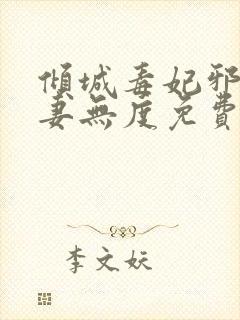 傾城毒妃邪
妻無度免費
李文妖